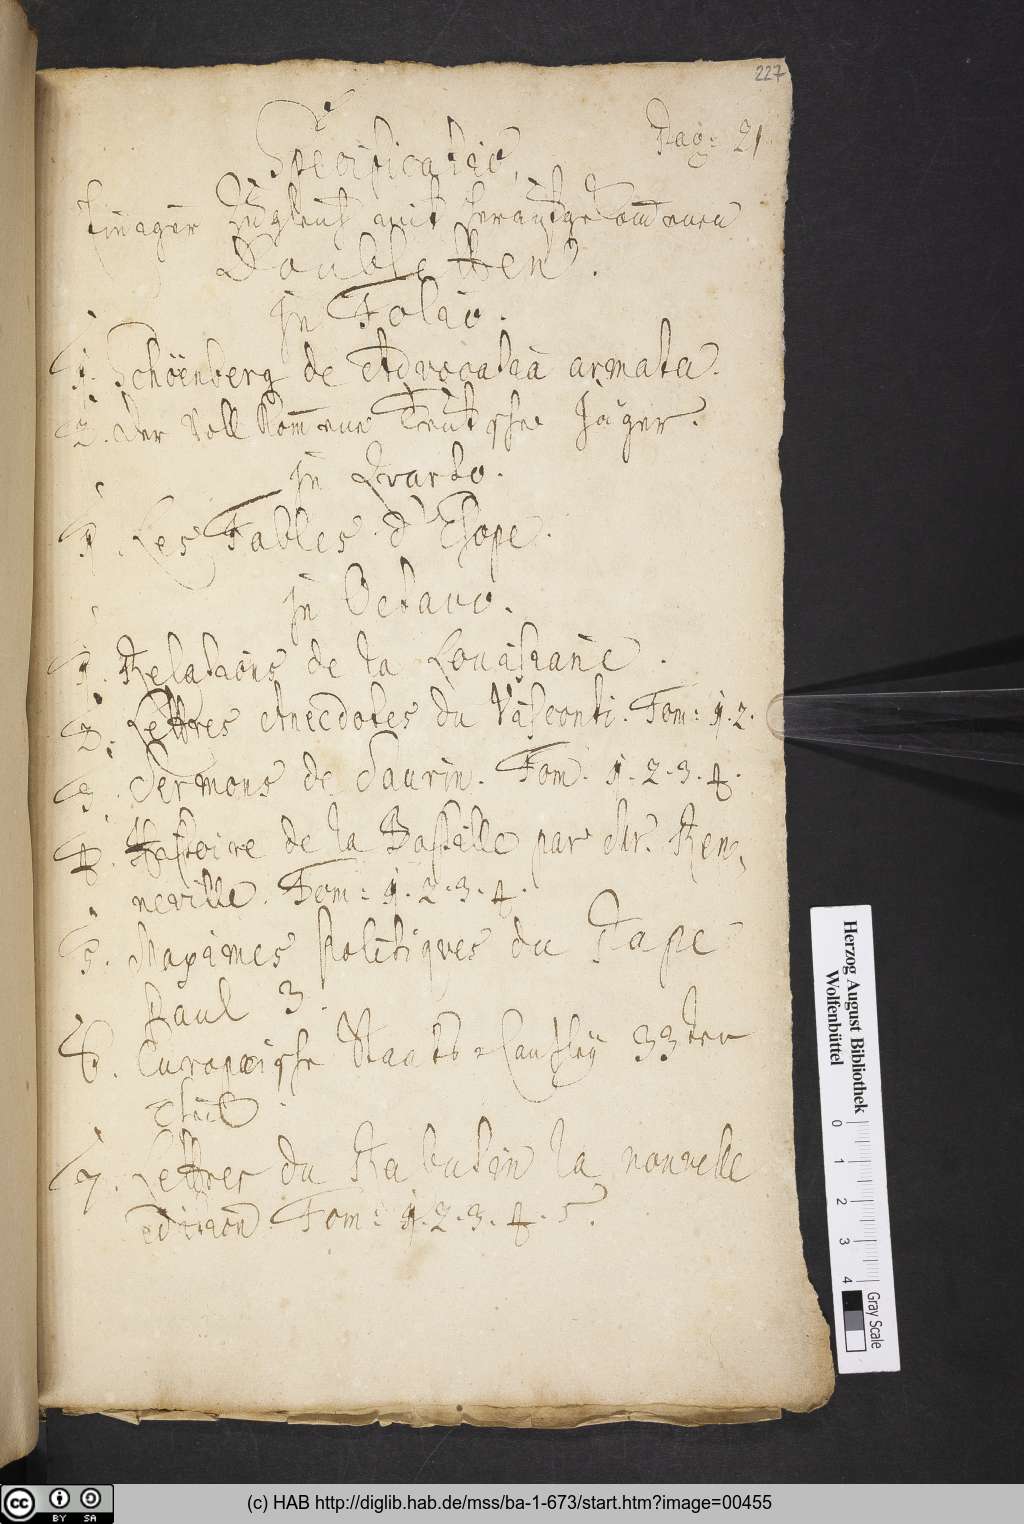 227
Pag: 21
Specificatio,
Einiger Zugleich mit herausgekom̅enen
Doubletten.
in Folio.
1. Schöenberg de Advocatia armata.
2. der Vollkom̅ene Teutsche Jäger.
in Qvarto.
1. Les Fables d'Esope.
in Octavo.
1. Relations de la Louisiane.
2. Lettres Anecdotes du Visconti. Tom: 1. 2.
3. Sermons de Saurin. Tom: 1. 2. 3. 4.
4. Histoire de la Bastille par Mr. Ren-
neville. Tom: 1. 2. 3. 4.
5. Maximes Politiques du Pape
Paul 3.
6. Europæische Staats-Cantzley 33ter
Theil.
7. Lettres du Rabutin la nouvelle
edition. Tom: 1. 2. 3. 4. 5.
Herzog August Bibliothek
Wolfenbüttel
0 1 2 3 4
Gray Scale
cc BY SA
(c) HAB http://diglib.hab.de/mss/ba-1-673/start.htm?image=00455